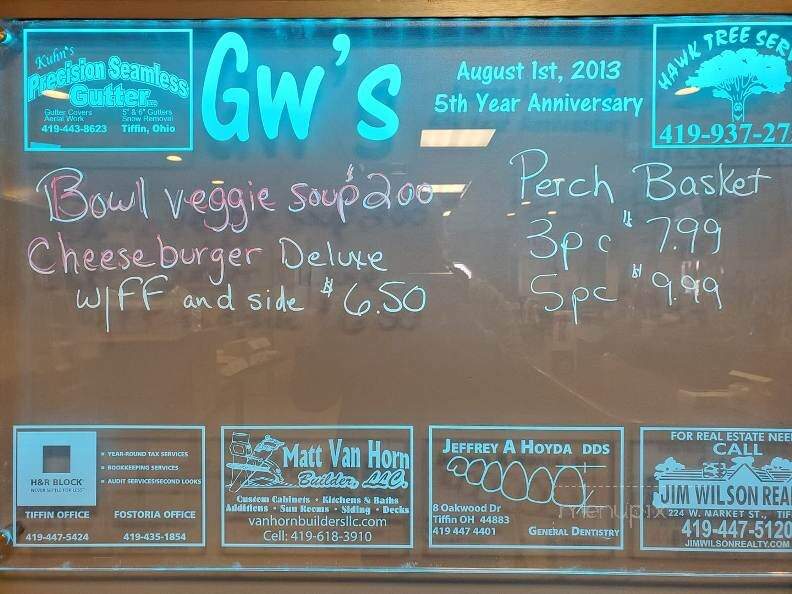 Kuhn's
Precision Seamless
Gutter
Gutter Covers 5" & 6" Gutters
Aerial Work Snow Removal
419-443-8623 Tiffin, Ohio
GW's
August 1st, 2013
5th Year Anniversary
HAWK TREE SER
419-937-27
Bowl veggie soup $2.00
Cheeseburger Deluxe
W/FF and side $6.50
Perch Basket
3pc $7.99
5pc $9.99
H&R BLOCK
NEVER SETTLE FOR LESS
• YEAR-ROUND TAX SERVICES
• BOOKKEEPING SERVICES
• AUDIT SERVICES/SECOND LOOKS
TIFFIN OFFICE FOSTORIA OFFICE
419-447-5424 419-435-1854
Matt Van Horn
Builder, LLC.
Custom Cabinets • Kitchens & Baths
Additions • Sun Rooms • Siding • Decks
vanhornbuildersllc.com
Cell: 419-618-3910
JEFFREY A HOYDA DDS
8 Oakwood Dr
Tiffin OH 44883
419 447 4401 GENERAL DENTISTRY
FOR REAL ESTATE NEE
CALL
JIM WILSON REA
224 W. MARKET ST., TIF
419-447-5120
JIMWILSONREALTY.COM
menupix